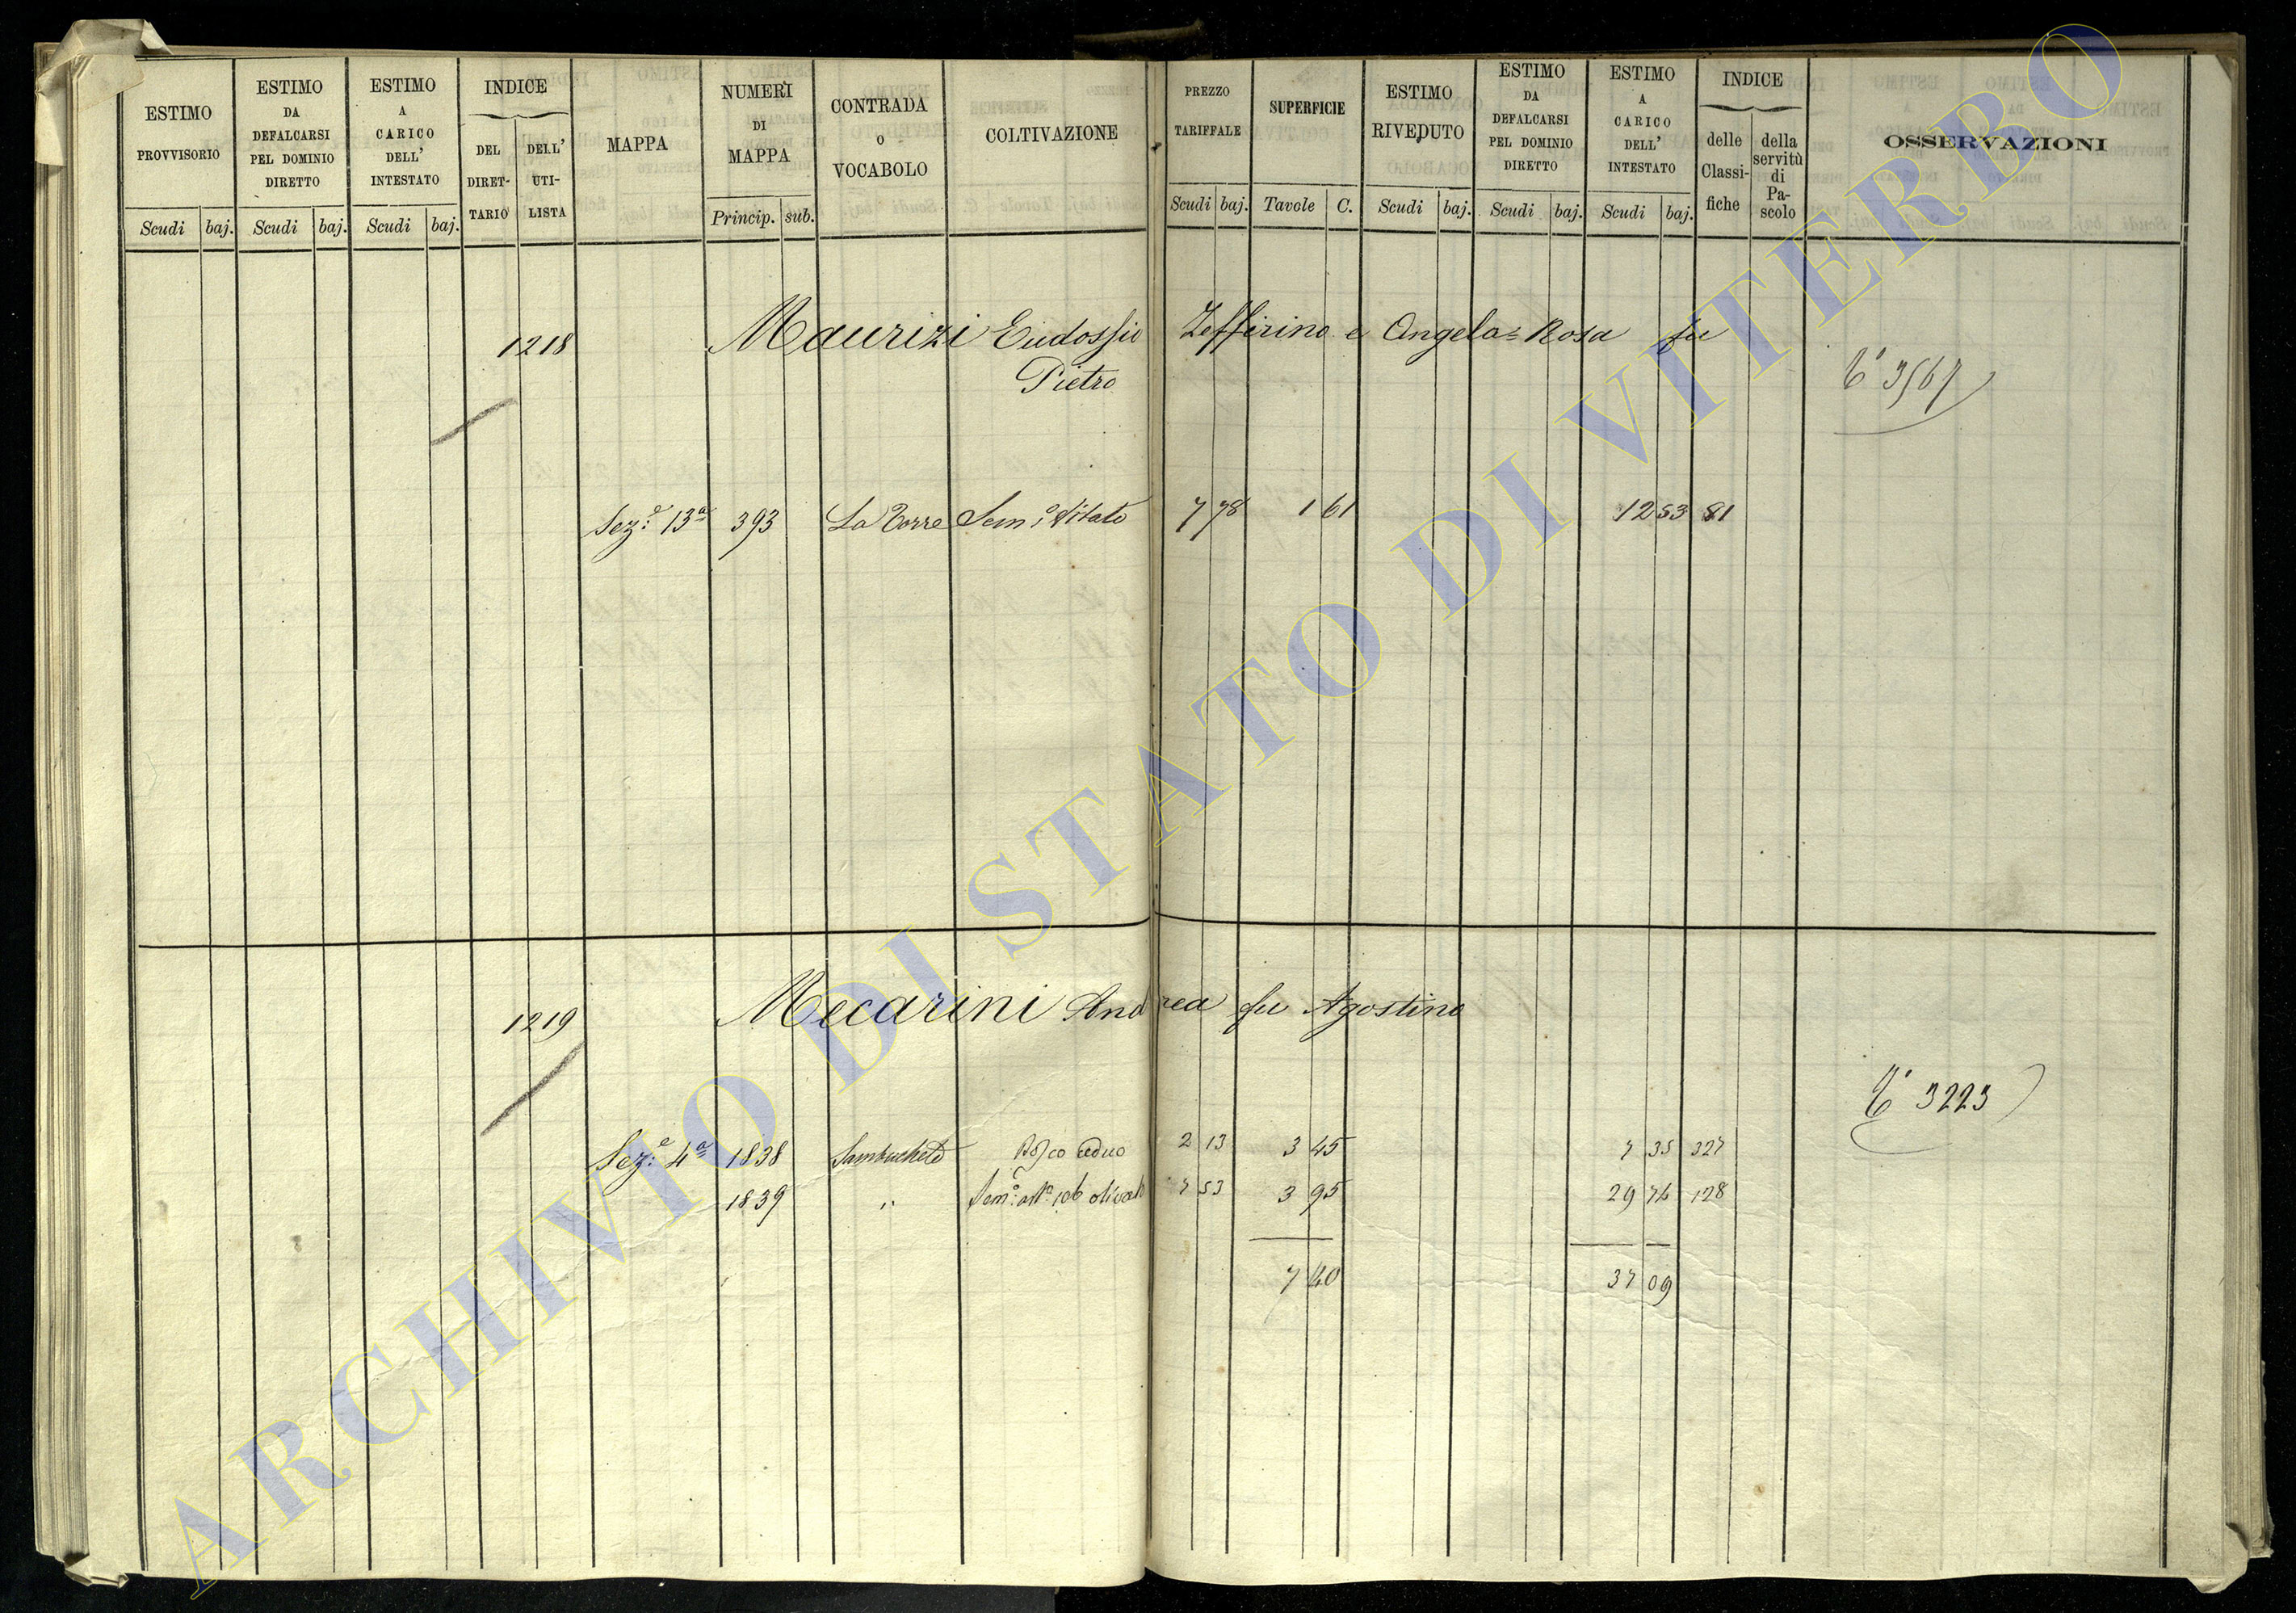 ESTIMO PROVVISORIO Scudi baj.
ESTIMO DA DEFALCARSI PEL DOMINIO DIRETTO Scudi baj.
ESTIMO A CARICO DELL' INTESTATO Scudi baj.
INDICE DEL DIRET- TARIO DELL' UTI- LISTA
MAPPA
NUMERI DI MAPPA Princip. sub.
CONTRADA O VOCABOLO
COLTIVAZIONE
PREZZO TARIFFALE Scudi baj.
SUPERFICIE Tavole C.
ESTIMO RIVEDUTO Scudi baj.
ESTIMO DA DEFALCARSI PEL DOMINIO DIRETTO Scudi baj.
ESTIMO A CARICO DELL' INTESTATO Scudi baj.
INDICE delle Classi- fiche della servitù di Pa- scolo
OSSERVAZIONI
1218 Maurizi Eudossio Zeffirino e Angela=Rosa fu
Pietro
3567
Sez.e 13a 393 La Torre Sem.o Vitato 7 78 1 61 12 53 81
1219 Mecarini Andrea fu Agostino
3223
Sez.e 4a 1838 Sambucheto Bosco ceduo 2 13 3 45 7 35 327
1839 " Sem.o olivato 7 53 3 95 29 74 128
7 40 37 09
ARCHIVIO DI STATO DI VITERBO